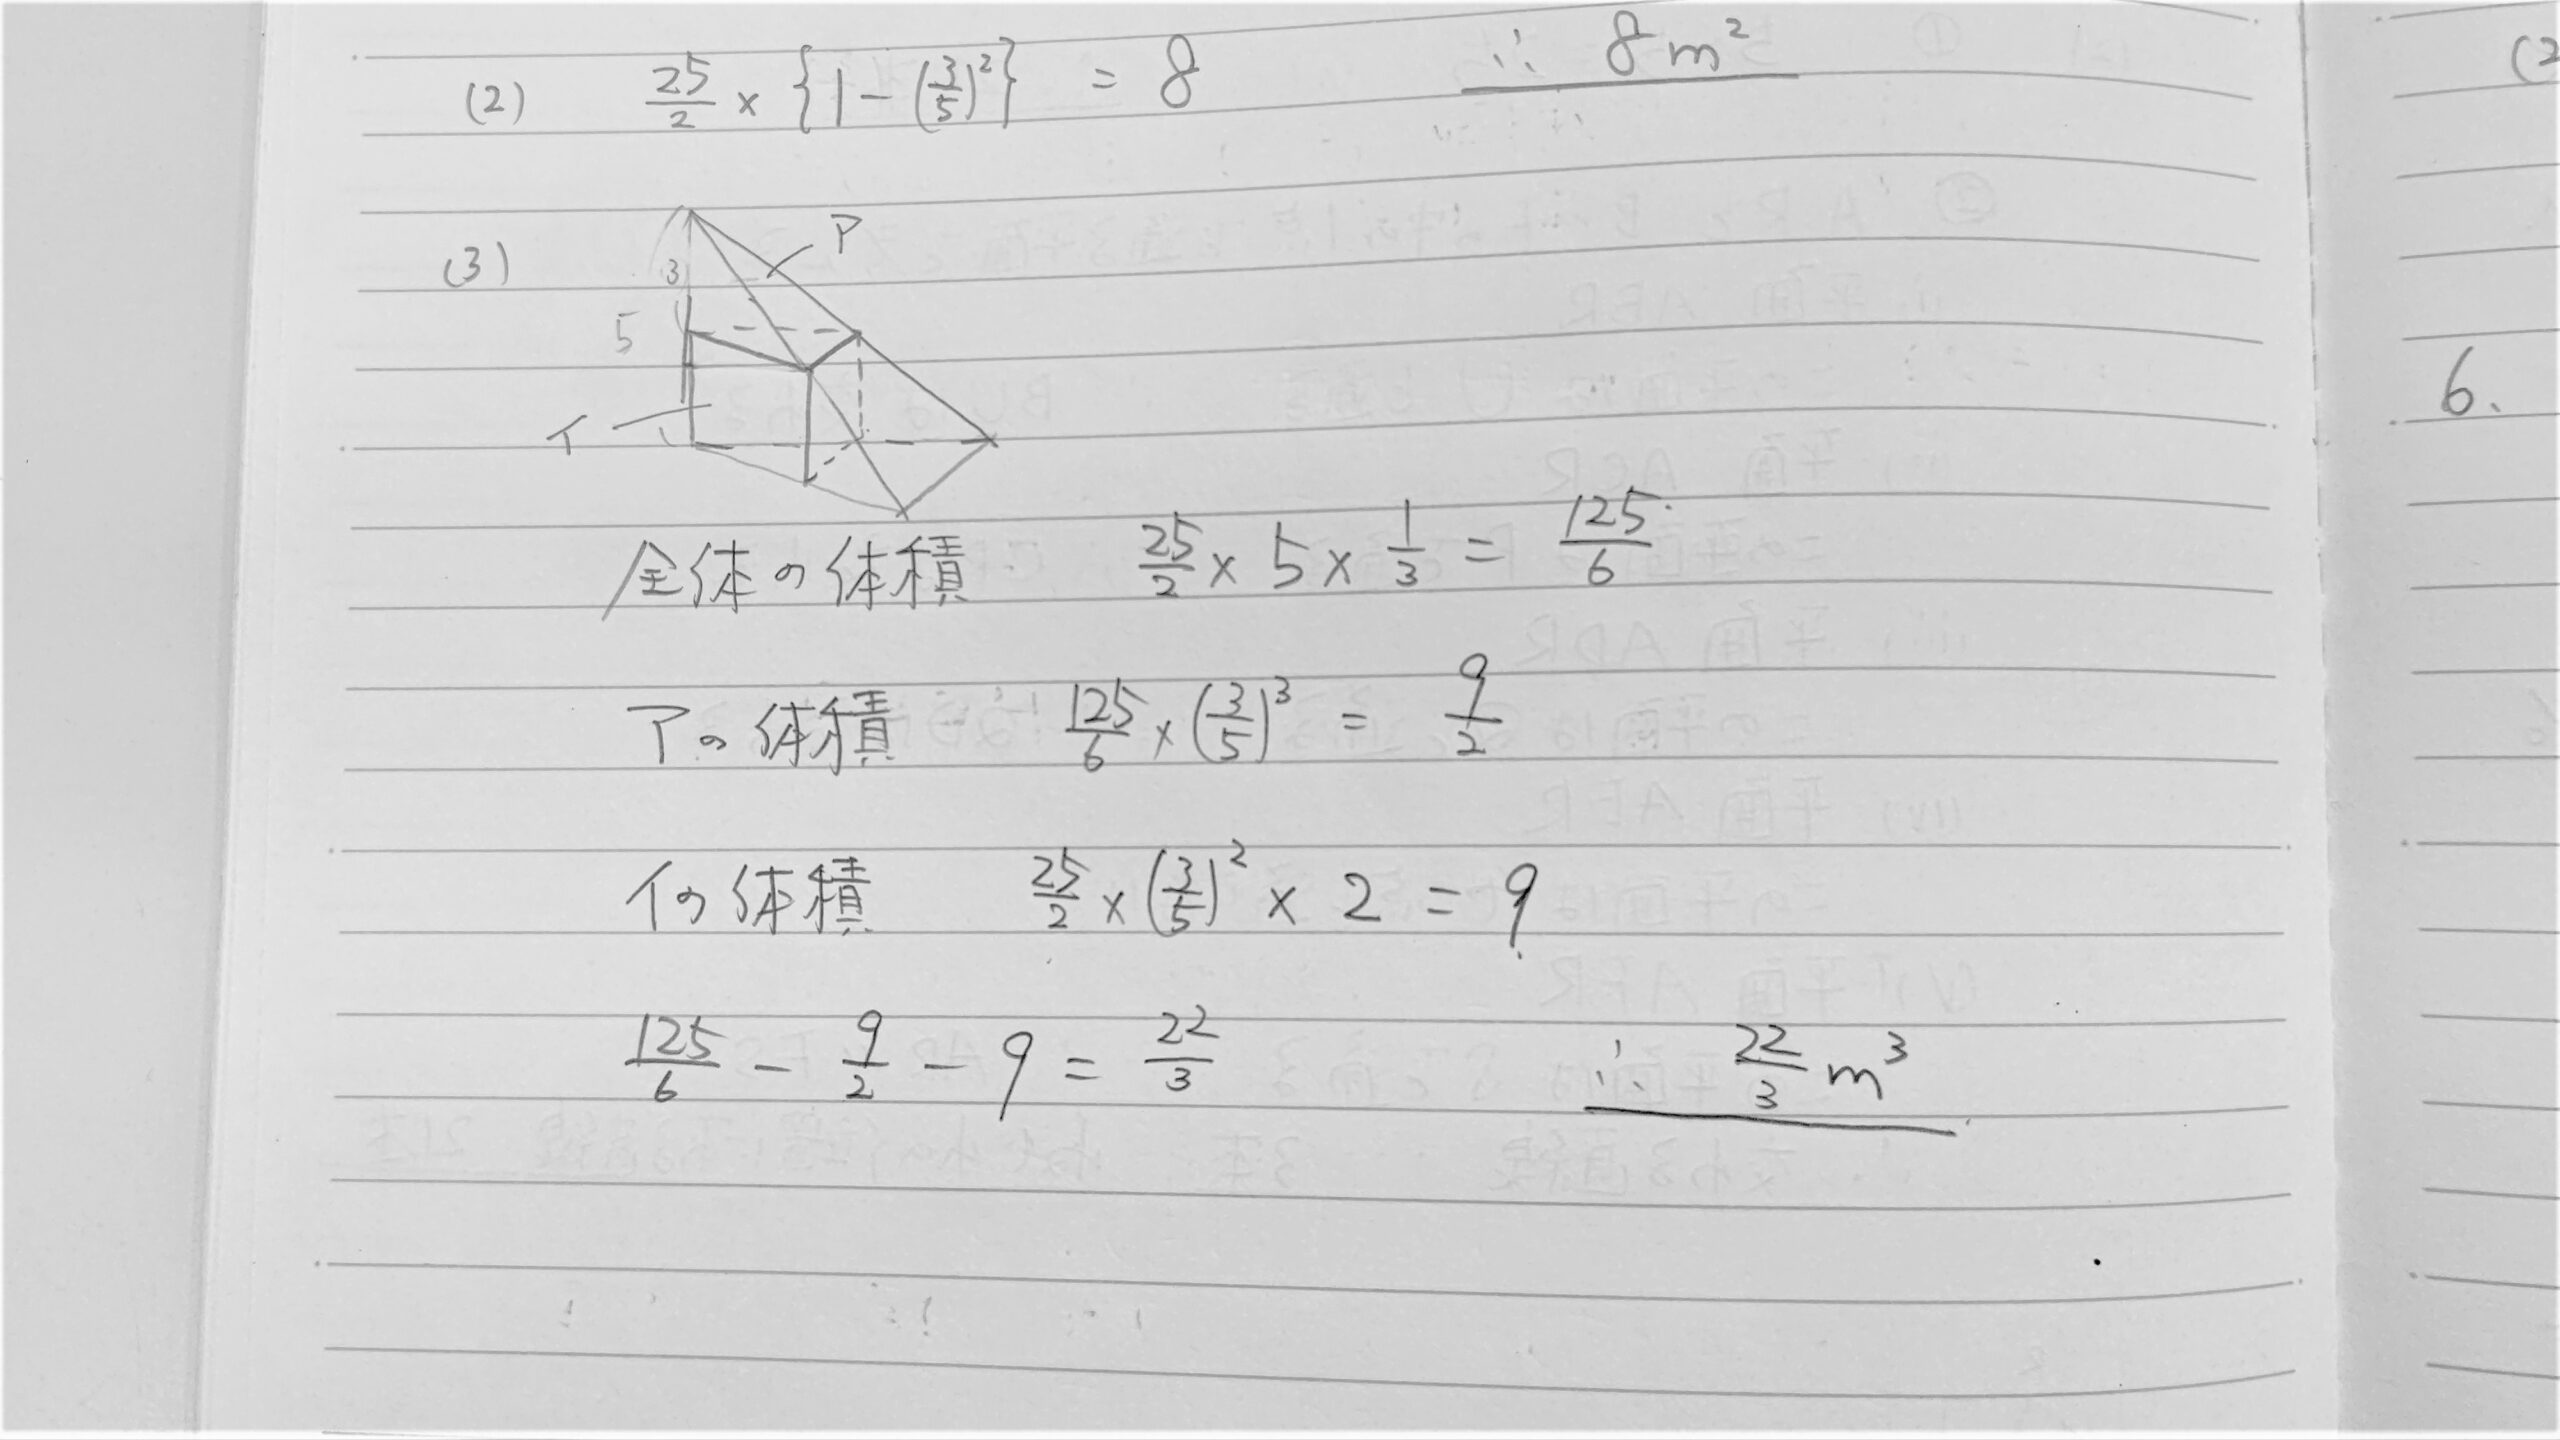 (2) 25/2 × {1 − (3/5)²} = 8 ∴ 8m²
(2
(3)
ア
3
5
イ
6.
全体の体積 25/2 × 5 × 1/3 = 125/6
アの体積 125/6 × (3/5)³ = 9/2
イの体積 25/2 × (3/5)² × 2 = 9
125/6 − 9/2 − 9 = 22/3 ∴ 22/3 m³